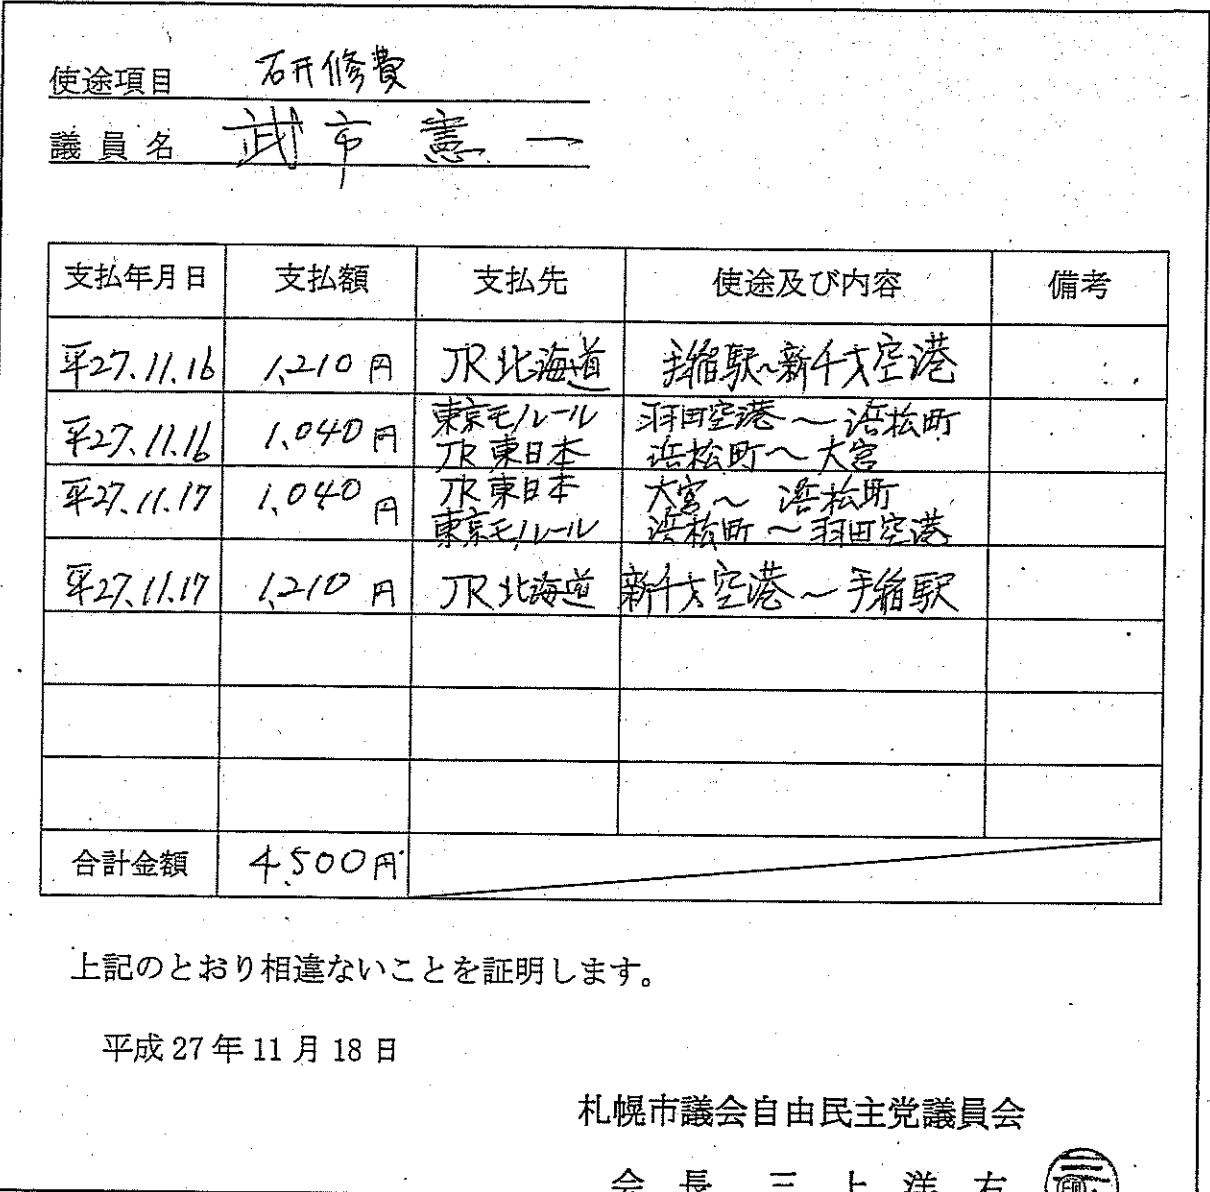 使途項目 研修費
議員名 武市憲一
支払年月日 支払額 支払先 使途及び内容 備考
平27.11.16 1,210円 JR北海道 手稲駅~新千才空港
平27.11.16 1,040円 東京モノレール 羽田空港~浜松町
JR東日本 浜松町~大宮
平27.11.17 1,040円 JR東日本 大宮~浜松町
東京モノレール 浜松町~羽田空港
平27.11.17 1,210円 JR北海道 新千才空港~手稲駅
合計金額 4,500円
上記のとおり相違ないことを証明します。
平成27年11月18日
札幌市議会自由民主党議員会
会長 三上洋右